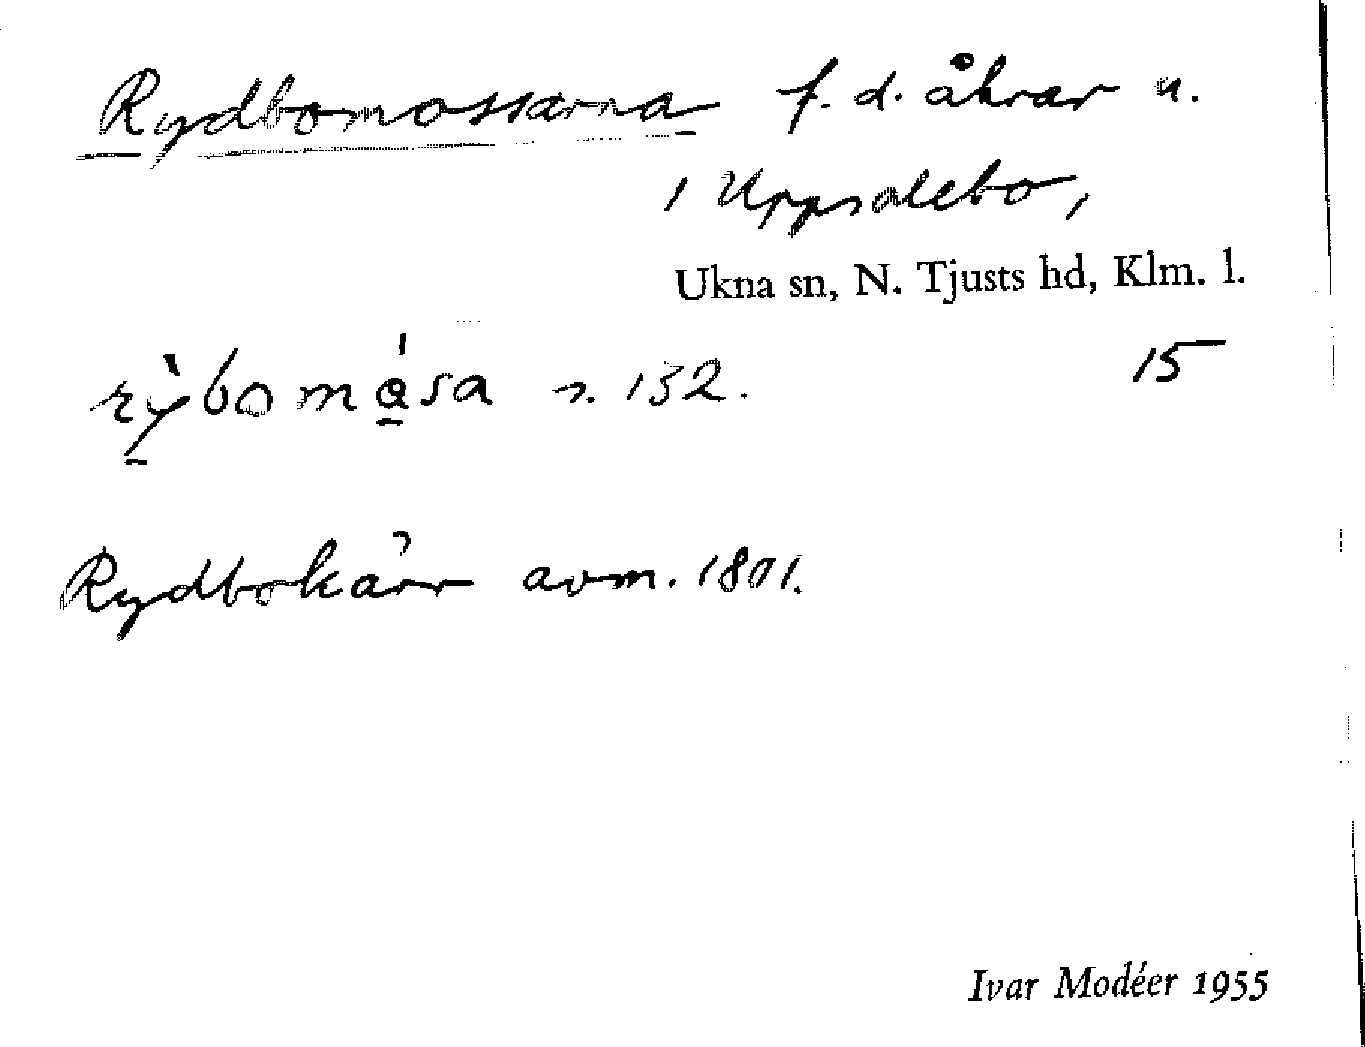 Rydbomossarna f. d. åkrar u.
1 Uppsalebo,
Ukna sn, N. Tjusts hd, Klm. l.
rỳbomåsa s. 132. 15
Rydbokärr avm. 1801.
Ivar Modéer 1955